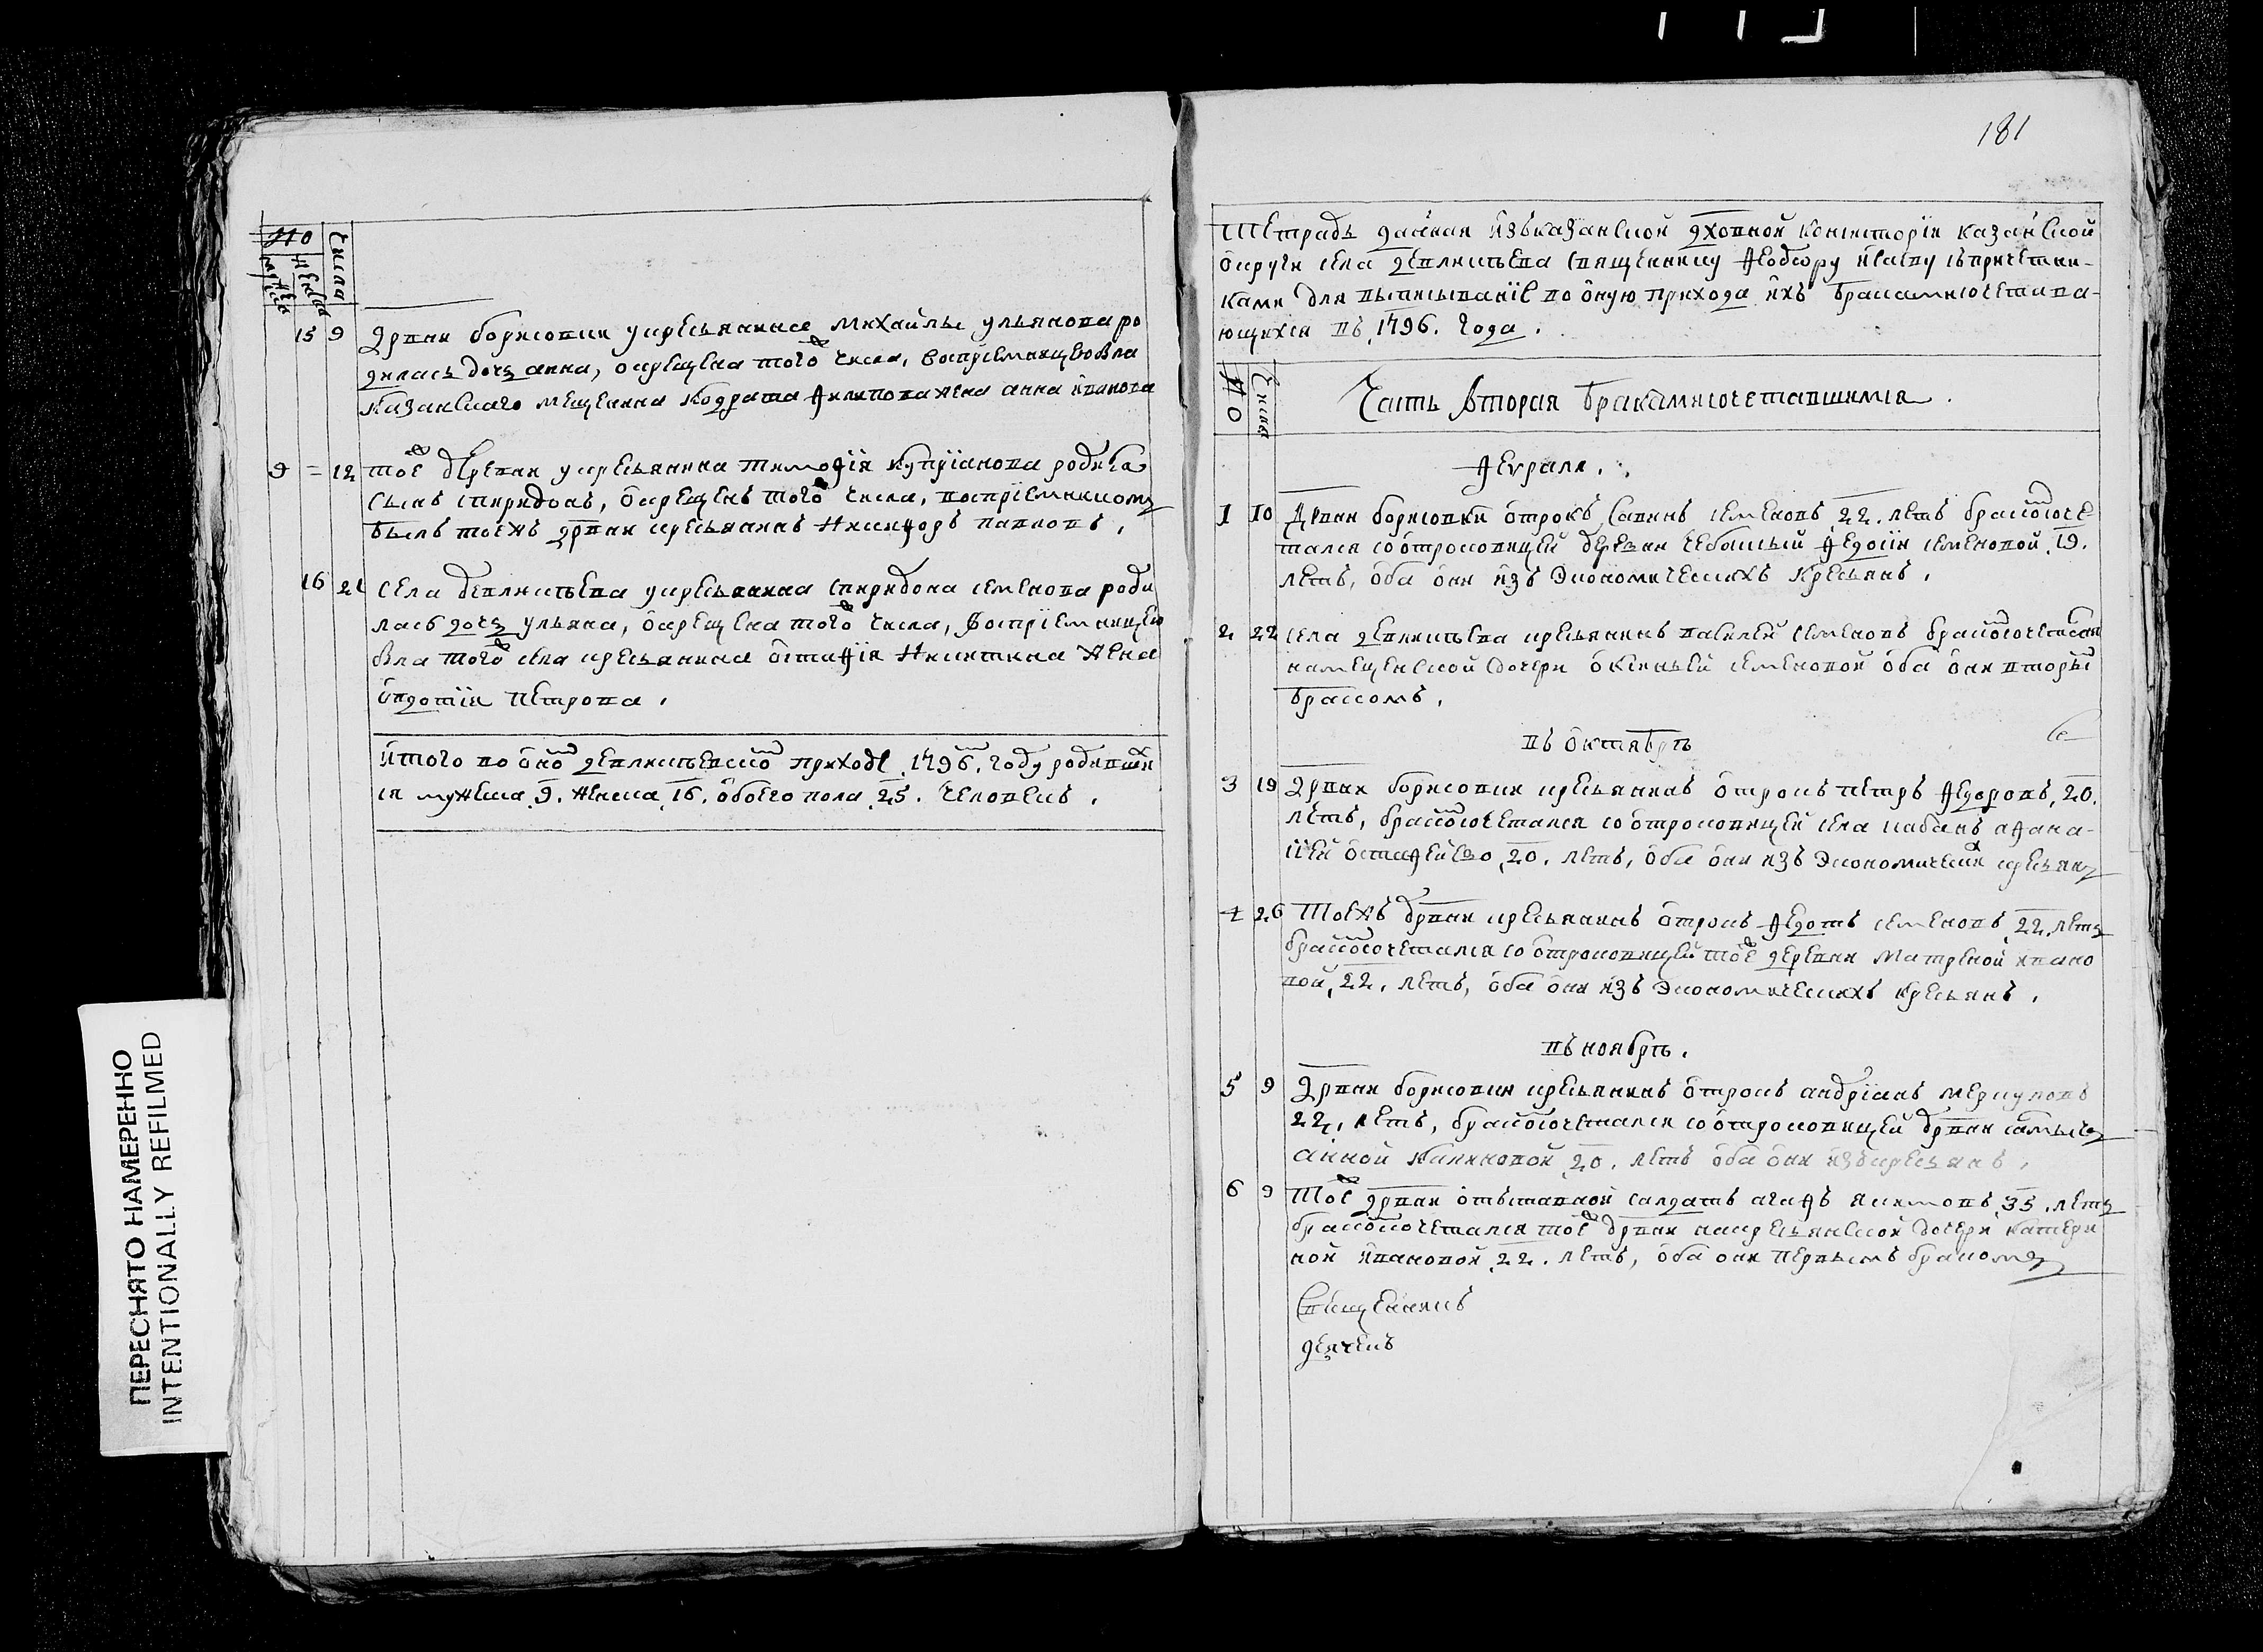 181
№
Числа
мужеска
женска
15 9 Дрвни борисовки укресьянина михайлы ульянова ро
дилась дочь анна, окрещена того ж числа, восприемницею бла
казанскаго мещенина Кодрата Филипова жена анна иванова
9 = 12 тое ж деревни укресьянина тимофiя купрiанова родился
сынъ спиридонъ, окрещенъ того числа, воспрiемникомъ
былъ тоежъ дрвни кресьянинъ Никифоръ павловъ,
16 21 села девликѣева укресьянина спиридона семенова роди
лась дочь ульяна, окрещена того ж числа, воспрiемницею
бла того ж села кресьянина остафiя Никитина жена
овдотiя петрова,
итого во оном девликѣевском приходе 1796. году родивши
ся мужеска 9. женска 16. обоего пола 25. человекъ.
Тетрадь данная изъказанской дховной консисторiи казанской
округи села девликѣева священнику Феодору Исаеву спричетни-
ками для вписыванiе во оную прихода ихъ бракамисочетава-
ющихся въ 1796. года.
№
Числа
Часть вторая бракамисочетавшимся.
Февраля.
1 10 Дрвни борисовки отрокъ Савинъ семеновъ 22. летъ бракомсоче
тался соотроковицей деревни чебаксы Федосiи семеновой 19.
летъ, оба они изъ Экономическихъ кресьянъ,
2 22 села девликѣева кресьянинъ василей семеновъ бракомсочетался
намещенской дочери оксиньей семеновой оба они вторым
бракомъ,
въ октябрѣ
3 19 Дрвни борисовки кресьянинъ отрокъ петръ Федоровъ, 20.
летъ, бракомсочетался соотроковицей села кабанъ афана-
сiей остафейево, 20. летъ, оба они изъ Экономических кресьянъ
4 26 Тоежъ дрвни кресьянинъ отрокъ Федотъ семеновъ 22. летъ
бракомсочетался соотроковицей тое ж деревни матреной ивано
вой, 22. летъ, оба они изъ Экономическихъ кресьянъ,
въ ноябрѣ.
5 9 Дрвни борисовки кресьянинъ отрокъ андрiанъ меркуловъ
22. летъ, бракомсочетался соотроковицей дрвни
анной калиновой 20. летъ оба они изъкресьянъ,
6 9 Тое ж дрвни отъставной салдатъ агафъ якимовъ 35. летъ
бракомсочетался тое ж дрвни накресьянской дочери катери
ной ивановой 22. летъ, оба они первымъ бракомъ
Священникъ
дьячекъ
ПЕРЕСНЯТО НАМЕРЕННО
INTENTIONALLY REFILMED